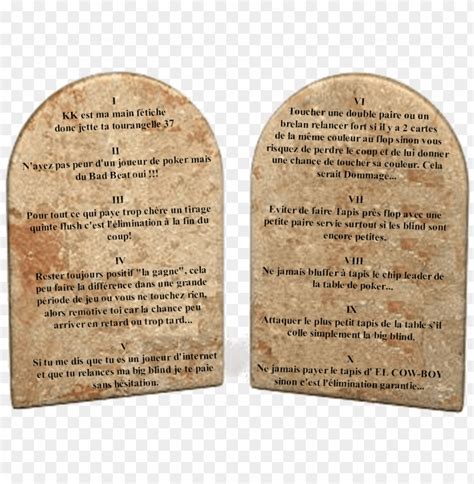 I
KK est ma main fétiche
donc jette ta tourangelle 37
II
N'ayez pas peur d'un joueur de poker mais
du Bad Beat oui !!!
III
Pour tout ce qui paye trop chère un tirage
quinte flush c'est l'élimination à la fin du
coup!
IV
Rester toujours positif "la gagne", cela
peu faire la différence dans une grande
période de jeu ou vous ne touchez rien,
alors remotive toi car la chance peu
arriver en retard ou trop tard...
V
Si tu me dis que tu es un joueur d'internet
et que tu relances ma big blind je te paie
sans hésitation.
VI
Toucher une double paire ou un
brelan relancer fort si il y a 2 cartes
de la même couleur au flop sinon vous
risquez de perdre le coup et de lui donner
une chance de toucher sa couleur. Cela
serait Dommage...
VII
Eviter de faire Tapis près flop avec une
petite paire servie surtout si les blind sont
encore petites.
VIII
Ne jamais bluffer à tapis le chip leader de
la table de poker...
IX
Attaquer le plus petit tapis de la table s'il
colle simplement la big blind.
X
Ne jamais payer le tapis d' EL COW-BOY
sinon c'est l'élimination garantie...